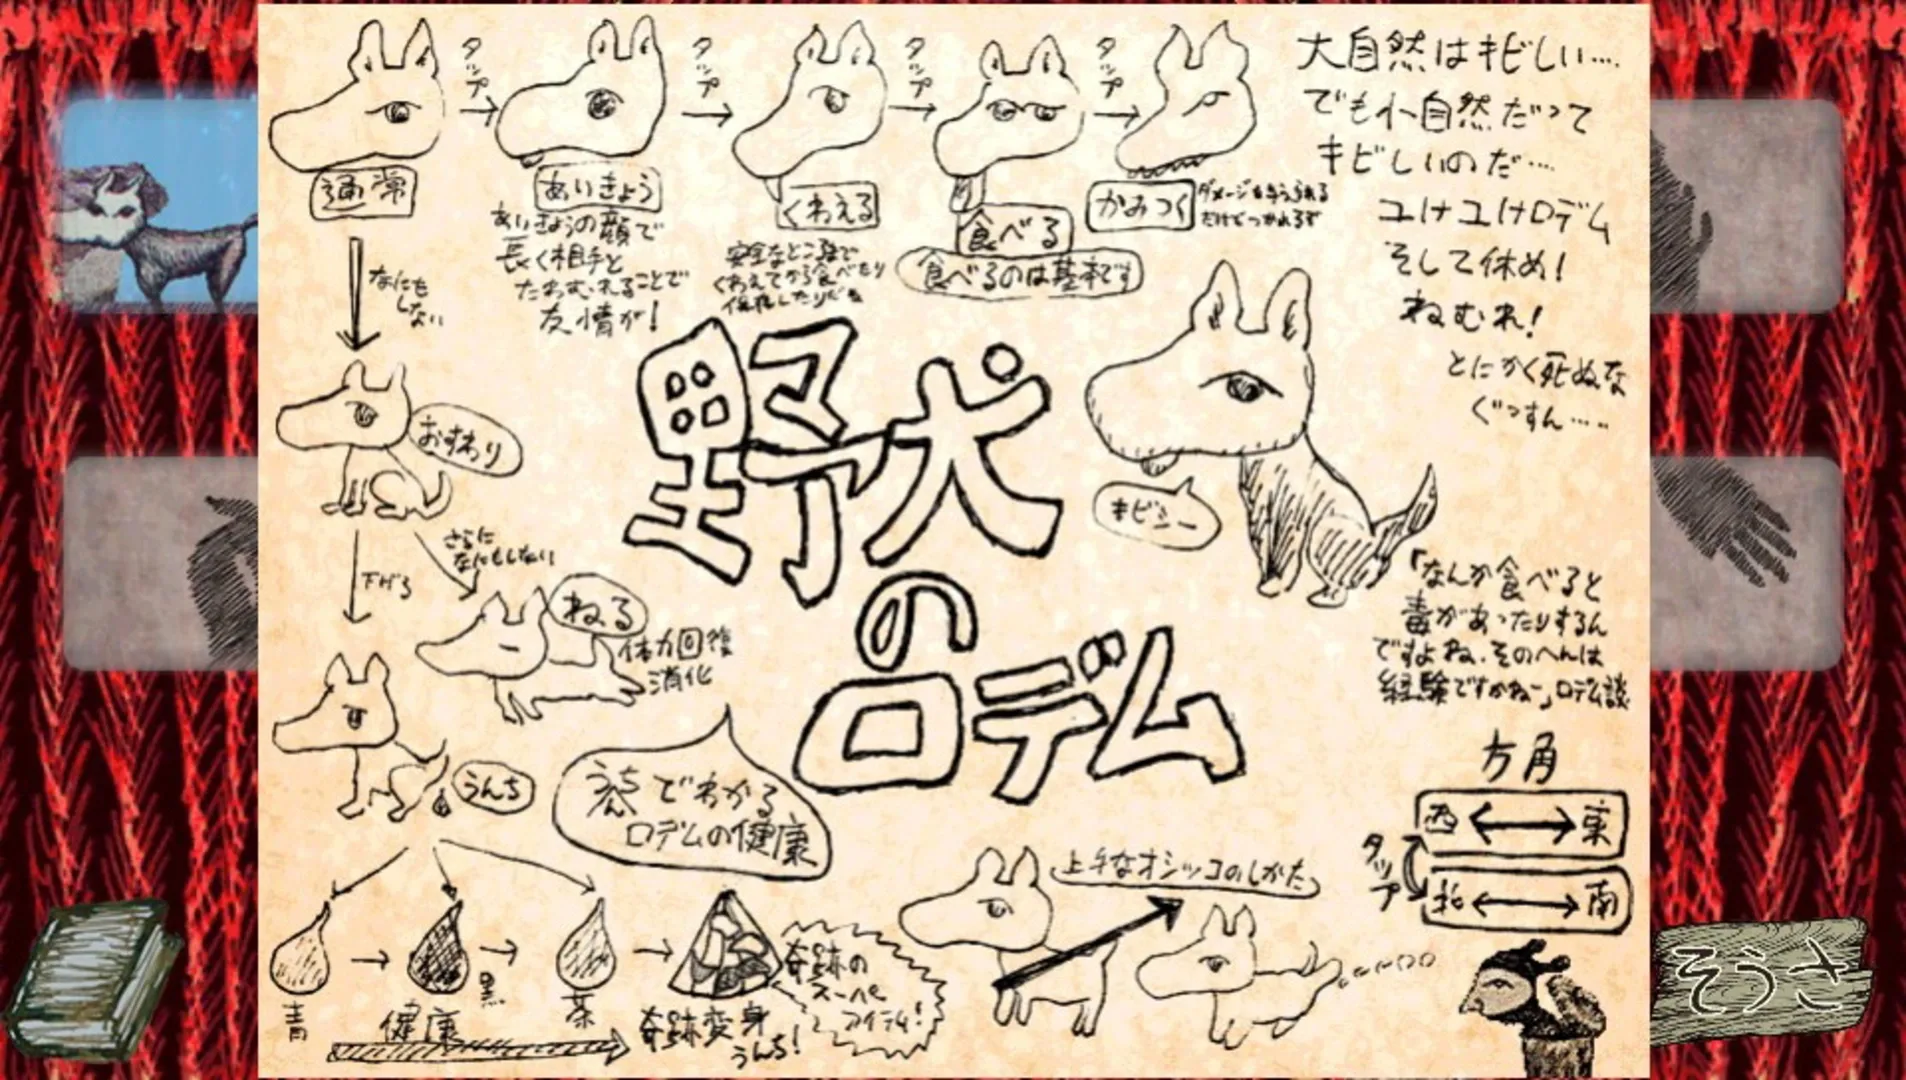 タップ
タップ
タップ
タップ
通常
あいきょう
くわえる
食べる
かみつく
ダメージを与えられる
だけでつかれるぞ
あいきょうの顔で
長く相手と
たわむれることで
友情が!
安全なところまで
くわえてから食べたり
食べるのは基本です
大自然はキビしい…
でも小自然だって
キビしいのだ…
ユけユけロデム
そして休め!
ねむれ!
とにかく死ぬな
ぐっすん……
なにも
しない
おすわり
下げる
さらに
なにもしない
ねる
体力回復
消化
うんち
野犬
の
ロデム
キビシー
「なんか食べると
毒があったりするん
ですよね、そのへんは
経験ですかねー」ロデム談
うんちでわかる
ロデムの健康
方角
西
東
タップ
北
南
上手なオシッコのしかた
青
黒
茶
健康
奇跡変身
うんち!
奇跡の
スーパー
アイテム!
そうさ